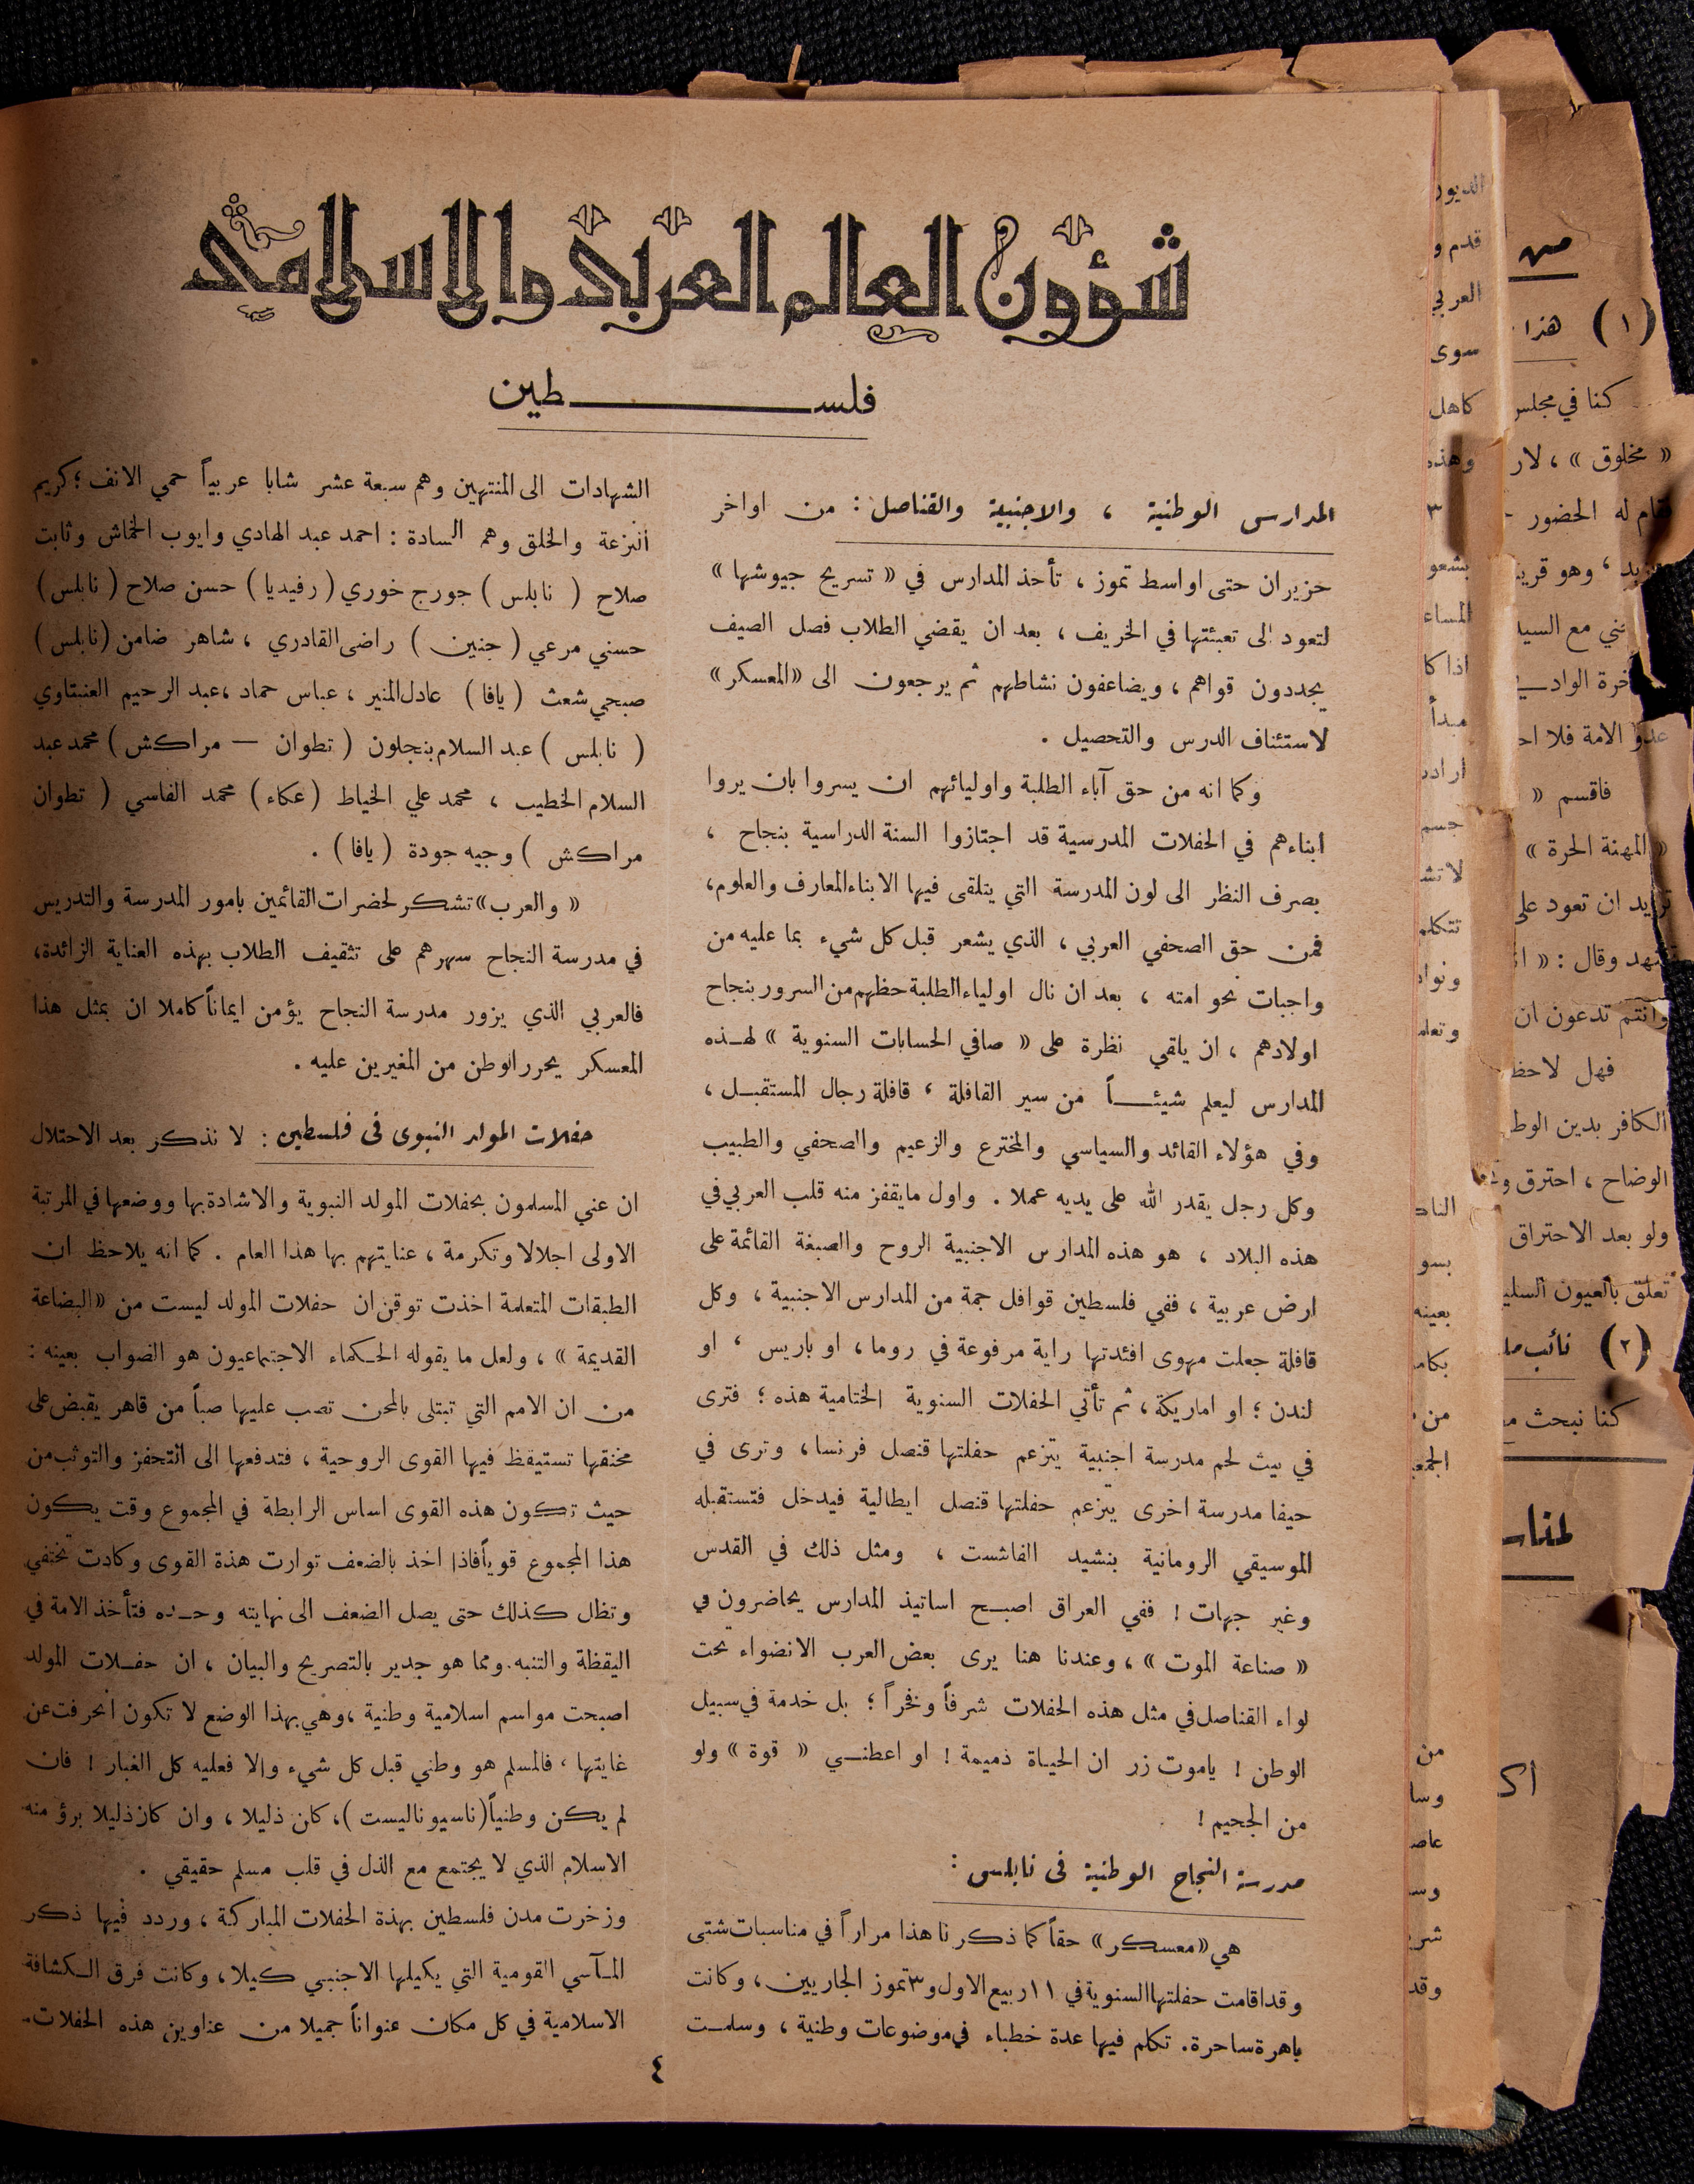 شؤون العالم العربي والاسلامي
فلسطين
المدارس الوطنية ، والاجنبية والقناصل : من اواخر
حزيران حتى اواسط تموز ، تأخذ المدارس في « تسريح جيوشها »
لتعود الى تعبئتها في الخريف ، بعد ان يقضي الطلاب فصل الصيف
يجددون قواهم ، ويضاعفون نشاطهم ثم يرجعون الى «المعسكر»
لاستئناف الدرس والتحصيل .
وكما انه من حق آباء الطلبة واوليائهم ان يسروا بان يروا
ابناءهم في الحفلات المدرسية قد اجتازوا السنة الدراسية بنجاح ،
بصرف النظر الى لون المدرسة التي يتلقى فيها الابناء المعارف والعلوم،
فمن حق الصحفي العربي ، الذي يشعر قبل كل شيء بما عليه من
واجبات نحو امته ، بعد ان نال اولياء الطلبة حظهم من السرور بنجاح
اولادهم ، ان يلقي نظرة على « صافي الحسابات السنوية » لهذه
المدارس ليعلم شيئاً من سير القافلة ، قافلة رجال المستقبل ،
وفي هؤلاء القائد والسياسي والمخترع والزعيم والصحفي والطبيب
وكل رجل يقدر الله على يديه عملا . واول ما يقفز منه قلب العربي في
هذه البلاد ، هو هذه المدارس الاجنبية الروح والصبغة القائمة على
ارض عربية ، ففي فلسطين قوافل جمة من المدارس الاجنبية ، وكل
قافلة جعلت مهوى افئدتها راية مرفوعة في روما ، او باريس ، او
لندن ؛ او اماريكة ، ثم تأتي الحفلات السنوية الختامية هذه ؛ فترى
في بيت لحم مدرسة اجنبية يتزعم حفلتها قنصل فرنسا ، وترى في
حيفا مدرسة اخرى يتزعم حفلتها قنصل ايطالية فيدخل فتستقبله
الموسيقي الرومانية بنشيد الفاشست ، ومثل ذلك في القدس
وغير جهات ! ففي العراق اصبح اساتيذ المدارس يحاضرون في
« صناعة الموت » ، وعندنا هنا يرى بعض العرب الانضواء تحت
لواء القناصل في مثل هذه الحفلات شرفاً وفخراً ؛ بل خدمة في سبيل
الوطن ! ياموت زر ان الحياة ذميمة ! او اعطني « قوة » ولو
من الجحيم !
مدرسة النجاح الوطنية في نابلس :
هي «معسكر» حقاً كما ذكرنا هذا مراراً في مناسبات شتى
وقد اقامت حفلتها السنوية في ١١ ربيع الاول و٣ تموز الجاريين ، وكانت
باهرة ساحرة. تكلم فيها عدة خطباء في موضوعات وطنية ، وسلمت
الشهادات الى المنتهين وهم سبعة عشر شابا عربياً حمي الانف ؛ كريم
النزعة والخلق وهم السادة : احمد عبد الهادي وايوب الخماش وثابت
صلاح ( نابلس ) جورج خوري ( رفيديا ) حسن صلاح ( نابلس )
حسني مرعي ( جنين ) راضي القادري ، شاهر ضامن (نابلس)
صبحي شعث ( يافا ) عادل المنير ، عباس حماد ،عبد الرحيم العنبتاوي
( نابلس ) عبد السلام بنجلون ( تطوان — مراكش ) محمد عبد
السلام الخطيب ، محمد علي الخياط ( عكاء ) محمد الفاسي ( تطوان
مراكش ) وجيه جودة ( يافا ) .
« والعرب » تشكر لحضرات القائمين بامور المدرسة والتدريس
في مدرسة النجاح سهرهم على تثقيف الطلاب بهذه العناية الزائدة،
فالعربي الذي يزور مدرسة النجاح يؤمن ايماناً كاملا ان بمثل هذا
المعسكر يحرر الوطن من المغيرين عليه .
حفلات المولد النبوي في فلسطين : لا نذكر بعد الاحتلال
ان عني المسلمون بحفلات المولد النبوية والاشادة بها ووضعها في المرتبة
الاولى اجلالا وتكرمة ، عنايتهم بها هذا العام . كما انه يلاحظ ان
الطبقات المتعلمة اخذت توقن ان حفلات المولد ليست من «البضاعة
القديمة » ، ولعل ما يقوله الحكماء الاجتماعيون هو الصواب بعينه :
من ان الامم التي تبتلى بالمحن تصب عليها صباً من قاهر يقبض على
مخنقها تستيقظ فيها القوى الروحية ، فتدفعها الى التحفز والتوثب من
حيث تكون هذه القوى اساس الرابطة في المجموع وقت يكون
هذا المجموع قوياً فاذا اخذ بالضعف توارت هذة القوى وكادت تختفي
وتظل كذلك حتى يصل الضعف الى نهايته وحده فتأخذ الامة في
اليقظة والتنبه. ومما هو جدير بالتصريح والبيان ، ان حفلات المولد
اصبحت مواسم اسلامية وطنية ، وهي بهذا الوضع لا تكون انحرفت عن
غايتها ، فالمسلم هو وطني قبل كل شيء والا فعليه كل الغبار ! فان
لم يكن وطنياً (ناسيوناليست) ، كان ذليلا ، وان كان ذليلا برؤ منه
الاسلام الذي لا يجتمع مع الذل في قلب مسلم حقيقي .
وزخرت مدن فلسطين بهذة الحفلات المباركة ، وردد فيها ذكر
المآسي القومية التي يكيلها الاجنبي كيلا ، وكانت فرق الكشافة
الاسلامية في كل مكان عنواناً جميلا من عناوين هذه الحفلات.
٤
قدم و
سوى
كاهل
وهذه
٣
المساء
اذا كا
مبدأ
لا تش
تتكلم
بسو
بعينه
من
وسا
وقد
(١) هذا
كنا في مجلس
« مخلوق » ، لار
قام له الحضور
عدو الامة فلا اح
فاقسم «
« المهنة الحرة »
تريد ان تعود على
وانتم تدعون ان
فهل لاحظ
الكافر بدين الوط
الوضاح ، احترق
ولو بعد الاحتراق
تعلق بالعيون السلي
(٢) نائب
كنا نبحث